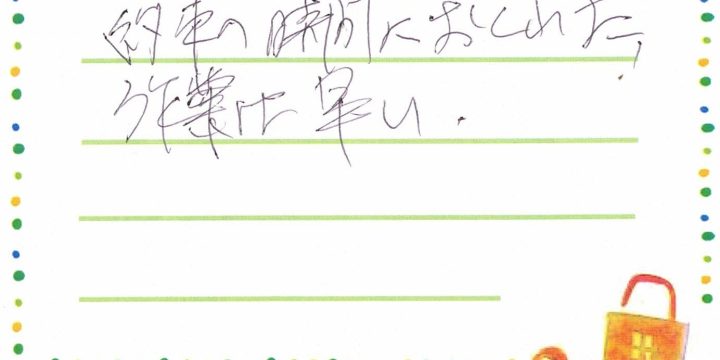 納車の時間におくれた,
作業は早い.